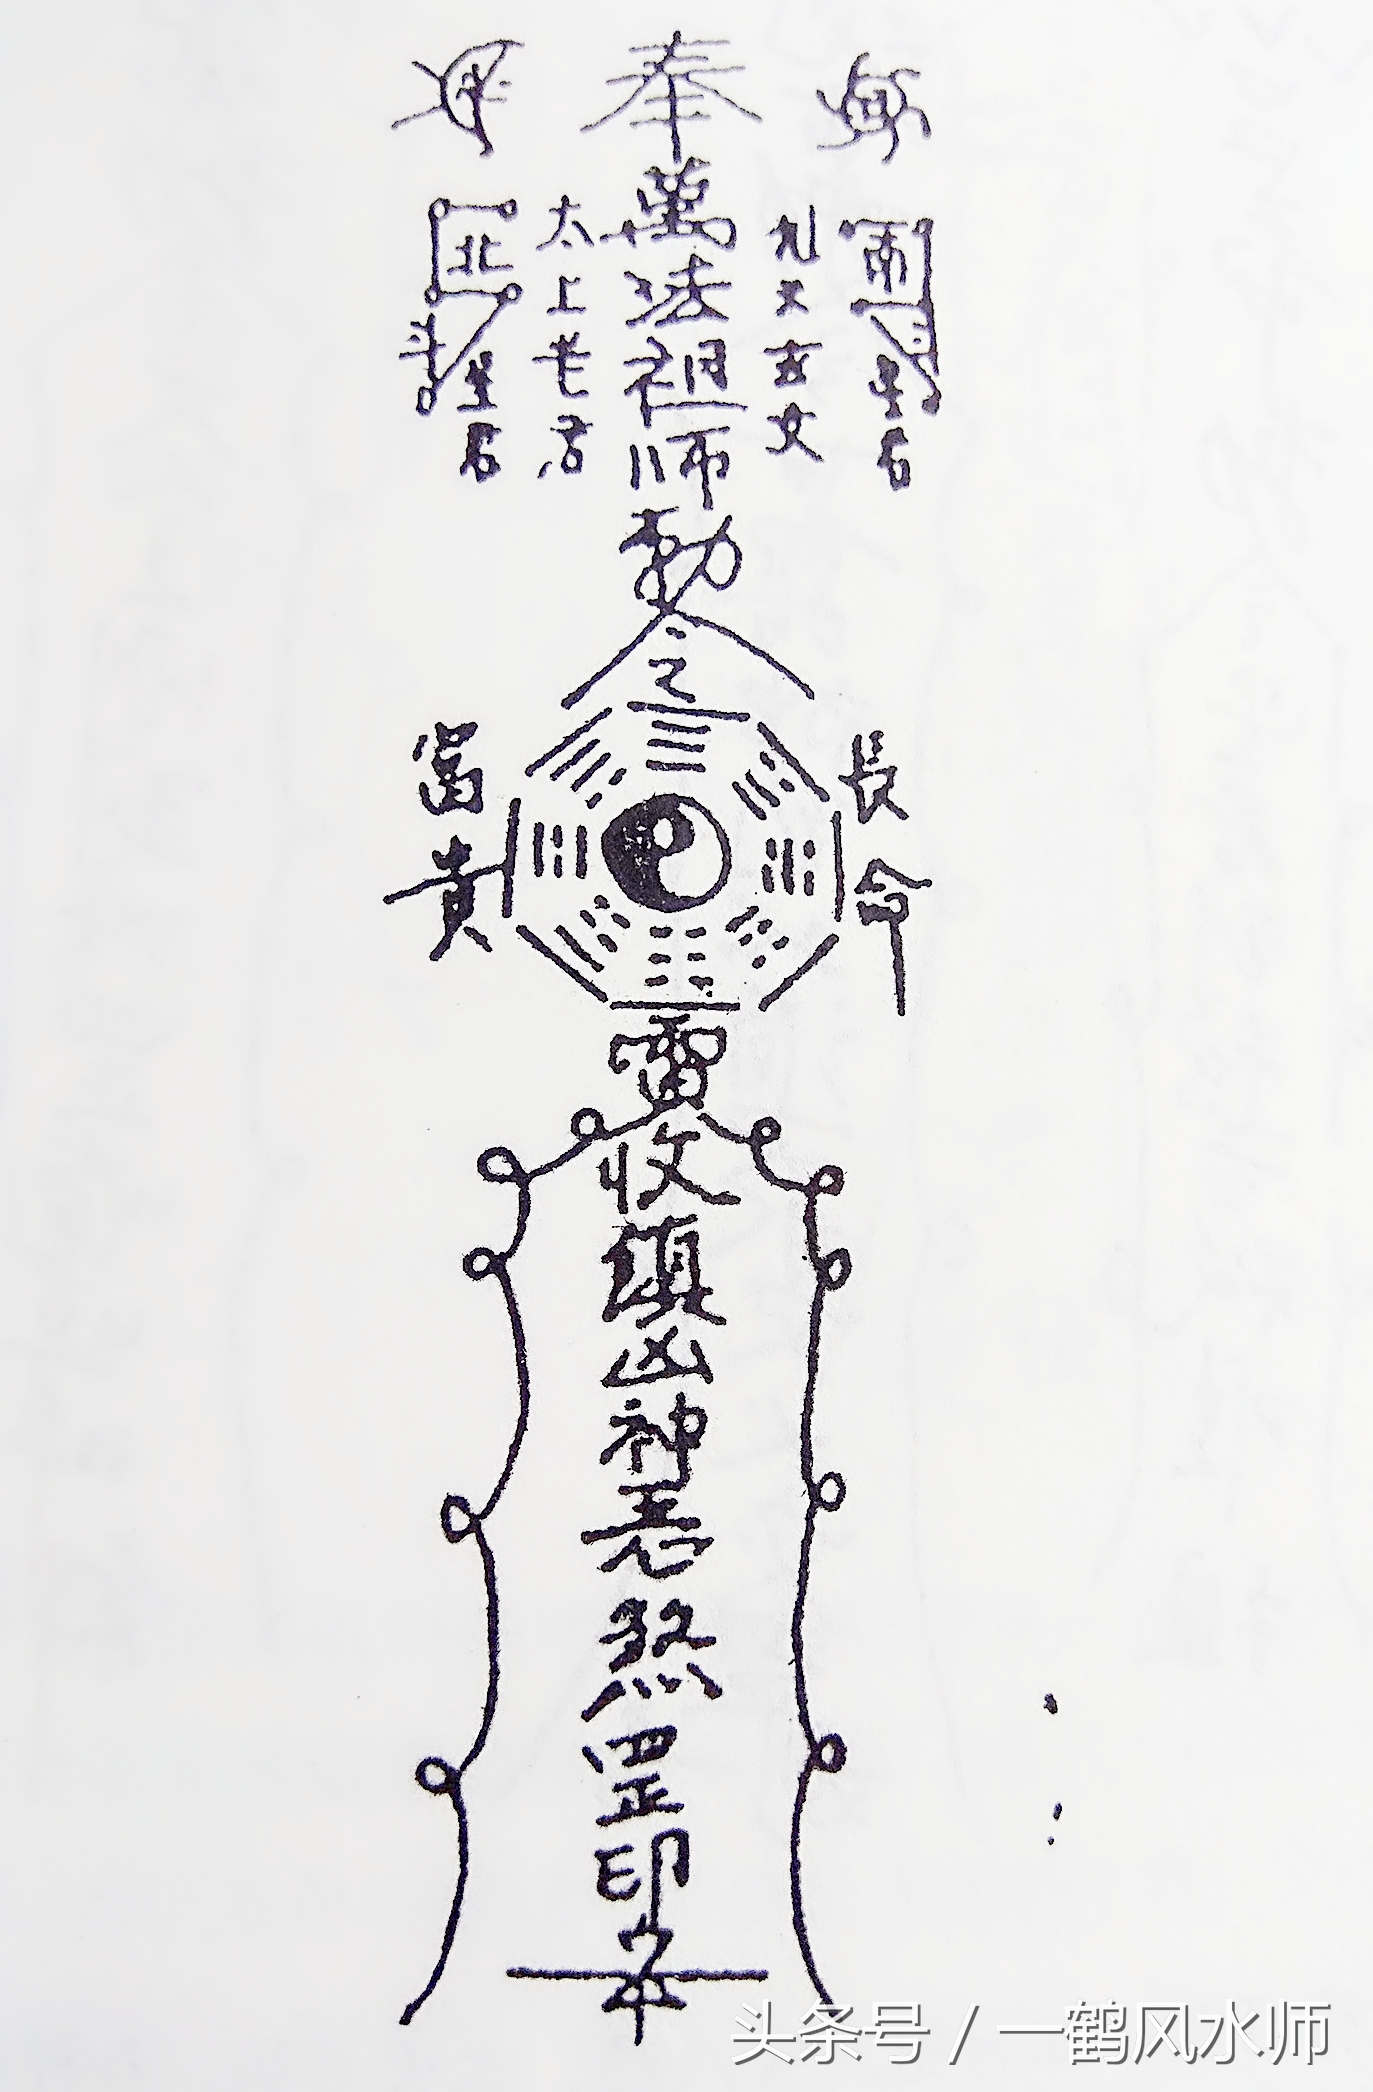 奉
萬法祖師勅令
太上老君
北斗星君
南斗星君
長命
富貴
雷
收鎮凶神惡煞罡印
头条号 / 一鹤风水师